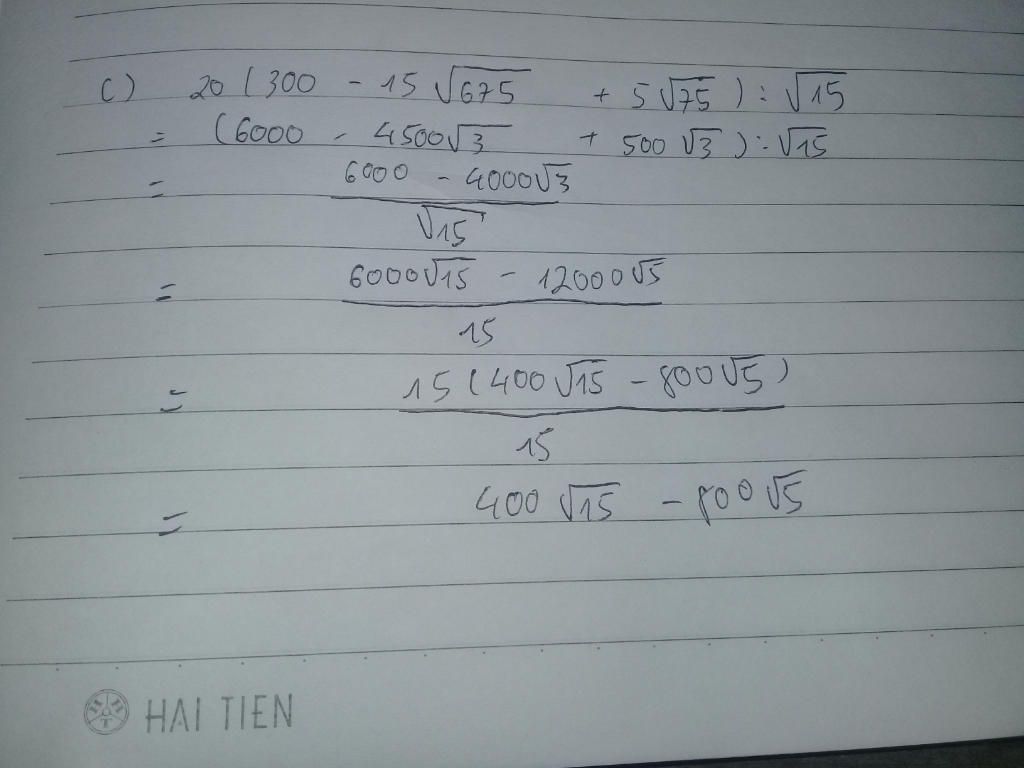 c) 20 (300 - 15 √675 + 5 √75) : √15
= (6000 - 4500√3 + 500 √3) : √15
= 6000 - 4000√3
√15
= 6000√15 - 12000√5
15
= 15 (400 √15 - 800 √5)
15
= 400 √15 - 800 √5
HHT
HAI TIEN